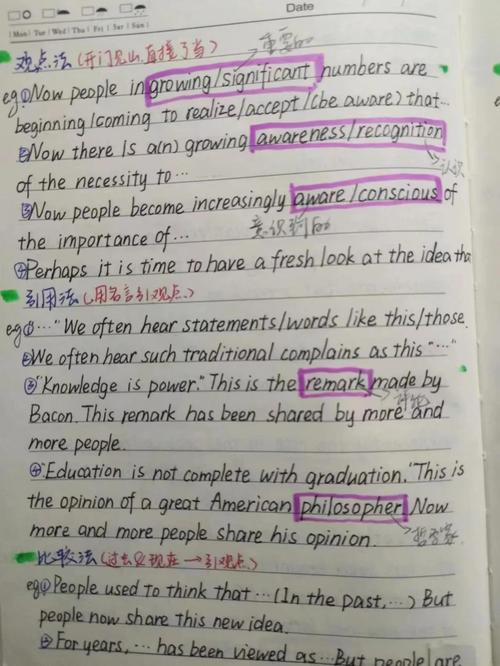 Date
Mon Tue Wed Thu Fri Sat Sun
观点法 (开门见山,直接了当) 重要的
eg ①Now people in growing/significant numbers are
beginning/coming to realize/accept/(be aware) that…
②Now there is a(n) growing awareness/recognition
of the necessity to… 认识
③Now people become increasingly aware/conscious of
the importance of… 意识到的
④Perhaps it is time to have a fresh look at the idea tha
引用法 (用名言引观点)
eg ①…"We often hear statements/words like this/those.
②We often hear such traditional complains as this "…"
③"Knowledge is power." This is the remark made by
Bacon. This remark has been shared by more and 评论
more people.
④"Education is not complete with graduation." This is
the opinion of a great American philosopher. Now
more and more people share his opinion. 哲学家
比较法 (过去&现在→引观点)
eg ①People used to think that… (In the past,…) But
people now share this new idea.
②For years, … has been viewed as… But people are